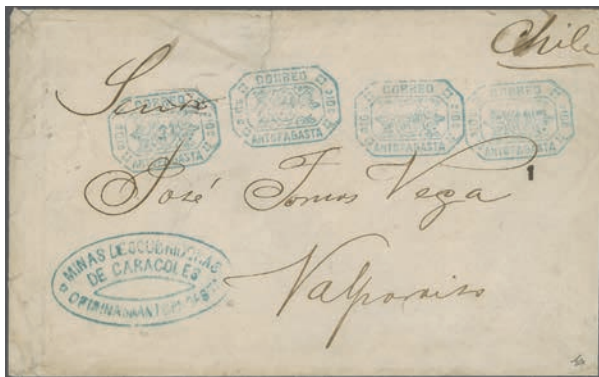 Chile
Señor
CORREO
ANTOFAGASTA
CORREO
10 c
ANTOFAGASTA
CORREO
10 c
ANTOFAGASTA
CORREO
10 c
ANTOFAGASTA
José Tomas Vega
1
MINAS DESCUBRIDORAS
DE CARACOLES
OFICINA ANTOFAGASTA
Valparaiso